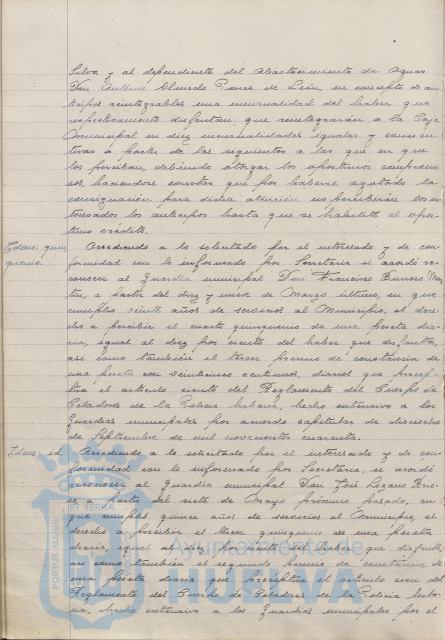 Silva y al dependiente del Abastecimiento de Aguas
Don Antonio Almredo Ponce de León, en concepto de an-
ticipos reintegrables una mensualidad del haber que
respectivamente disfrutan, que reintegrarán a la Caja
Municipal en diez mensualidades iguales y consecu-
tivas a partir de las siguientes a las que en que
los perciban, debiendo otorgar los oportunos compromi-
sos, haciendose constar que por haberse agotado la
consignación para dicha atención no percibirán los in-
teresados los anticipos hasta que se habilite el opor-
tuno crédito.
Idem: quin-
quenio.
Accediendo a lo solicitado por el interesado y de con-
formidad con lo informado por Secretaría se acordó re-
conocer al Guardia municipal Don Francisco Borrero Mar-
tin, a partir del diez y nueve de Marzo último, en que
cumplio veinte años de servicios al Municipio, el dere-
cho a percibir el cuarto quinquenio de una peseta dia-
ria, igual al diez por ciento del haber que disfruta,
así como también el tercer premio de constancia de
una peseta con veinticinco centimos, diarios que precep-
tua el articulo ciento del Reglamento del Cuerpo de
Celadores de la Policia urbana, hecho extensivo a los
Guardias municipales por acuerdo capitular de dieciocho
de Septiembre de mil novecientos cuarenta.
Idem, id.
Accediendo a lo solicitado por el interesado y de con-
formidad con lo informado por Secretaria, se acordó
reconocer al Guardia municipal Don José Lozano
a partir del siete de Mayo próximo pasado, en
que cumplió quince años de servicios al Municipio, el
derecho a percibir el tercer quinquenio de una peseta
diaria, igual al diez por ciento del haber que disfruta,
así como también el segundo premio de constancia de
una peseta diaria que preceptua el articulo cien del
Reglamento del Cuerpo de Celadores de la Policia urba-
na, hecho extensivo a los Guardias municipales por el
PORTUS MARIS
ET TERRAE
Ayuntamiento de
HUELVA